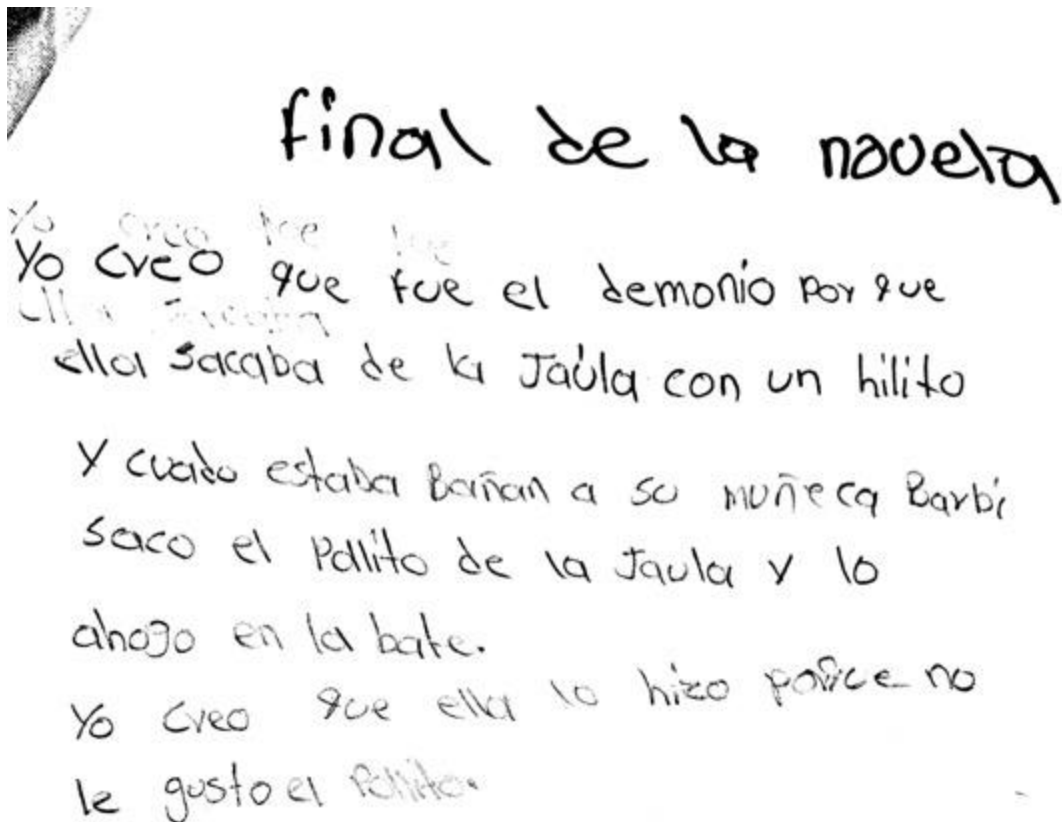 final de la novela
Yo creo que fue el demonio por que
ella sacaba de la Jaúla con un hilito
Y cuado estaba Bañan a su muñeca Barbi
saco el Pollito de la Jaula y lo
ahogo en la bate.
Yo creo que ella lo hizo no
le gusto el Pollito.